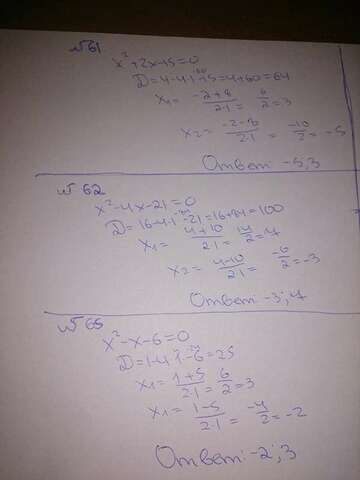 №61
x²+2x-15=0
D=4-4·1·-15=4+60=64
x₁= -2+8/2·1 = 6/2=3
x₂= -2-8/2·1 = -10/2 = -5
Ответ: -5;3
№62
x²-4x-21=0
D=16-4·1·-21=16+84=100
x₁= 4+10/2·1 = 14/2=7
x₂= 4-10/2·1 = -6/2=-3
Ответ: -3;7
№65
x²-x-6=0
D=1-4·1·-6=25
x₁= 1+5/2·1 = 6/2=3
x₁= 1-5/2·1 = -4/2=-2
Ответ: -2;3